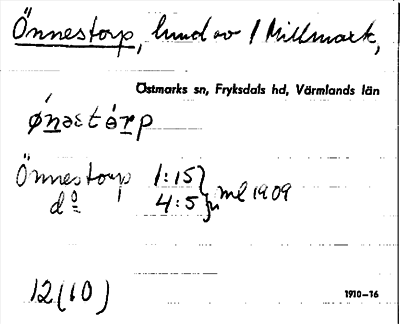 Önnestorp, lund av 1 Millmark,
Östmarks sn, Fryksdals hd, Värmlands län
ǿnəstɵ̀rp
Önnestorp 1:15
dº 4:5 } ml 1909
12(10)
1910–16